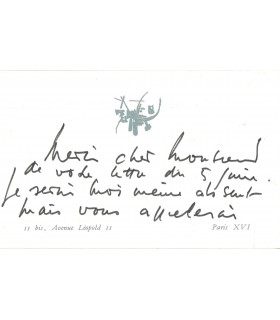 Merci cher Monsieur
de votre lettre du 5 juin.
je serai moi même absent
mais vous appelerai
11 bis, Avenue Léopold II Paris XVI